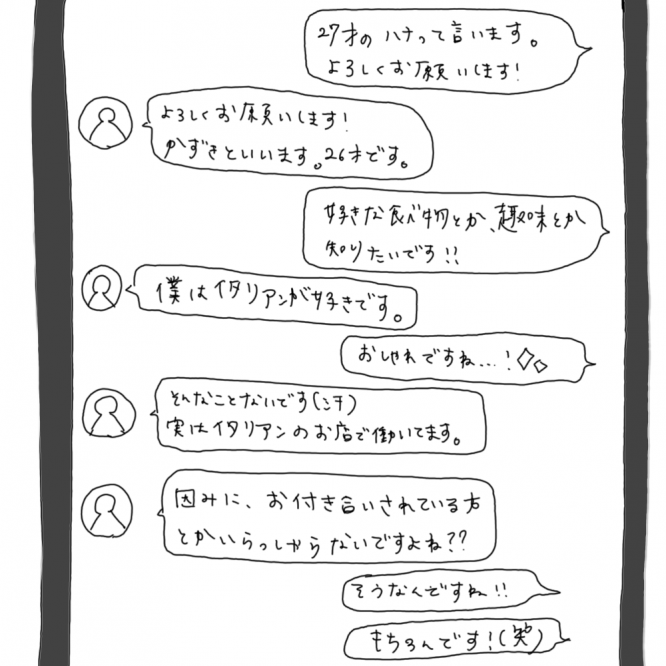 27才のハナって言います。
よろしくお願いします!
よろしくお願いします!
かずきといいます。26才です。
好きな食べ物とか、趣味とか
知りたいです!!
僕はイタリアンが好きです。
おしゃれですね…!
そんなことないです(汗)
実はイタリアンのお店で働いてます。
因みに、お付き合いされている方
とかいらっしゃらないですよね??
そうなんですね!!
もちろんです!(笑)